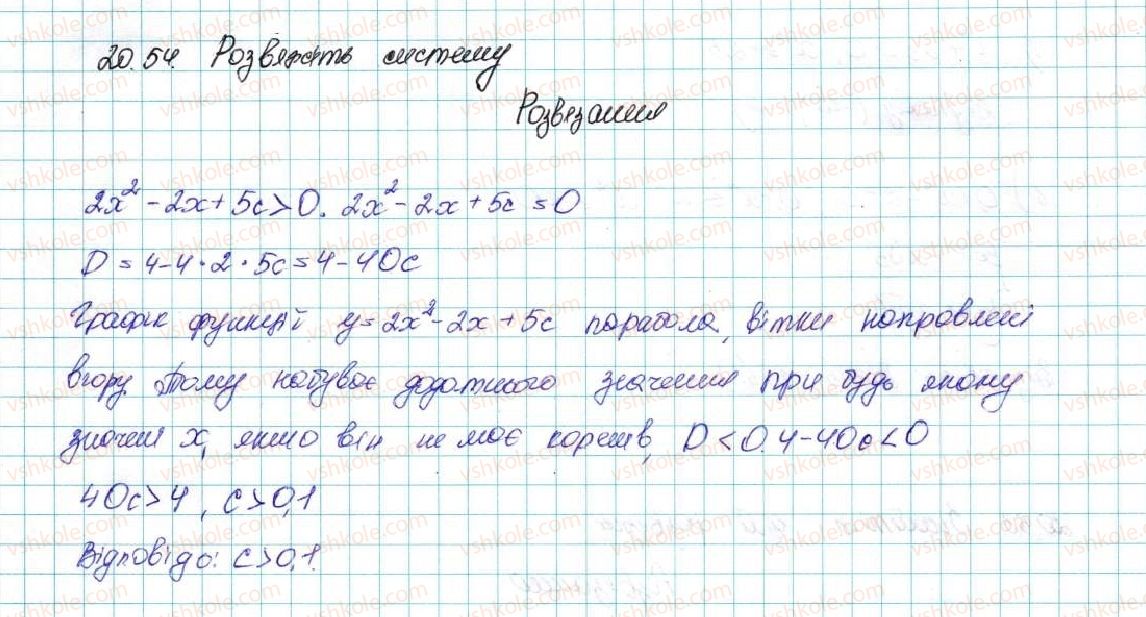 20.54. Розвяжіть систему
Розвязання
2x² - 2x + 5c > 0. 2x² - 2x + 5c = 0
D = 4 - 4 · 2 · 5c = 4 - 40c
Графік функції y = 2x² - 2x + 5c парабола, вітки направлені
вгору. Тому набуває додатного значення при будь якому
значені x, якщо він не має коренів, D < 0. 4 - 40c < 0
40c > 4, c > 0,1
Відповідь: c > 0,1.